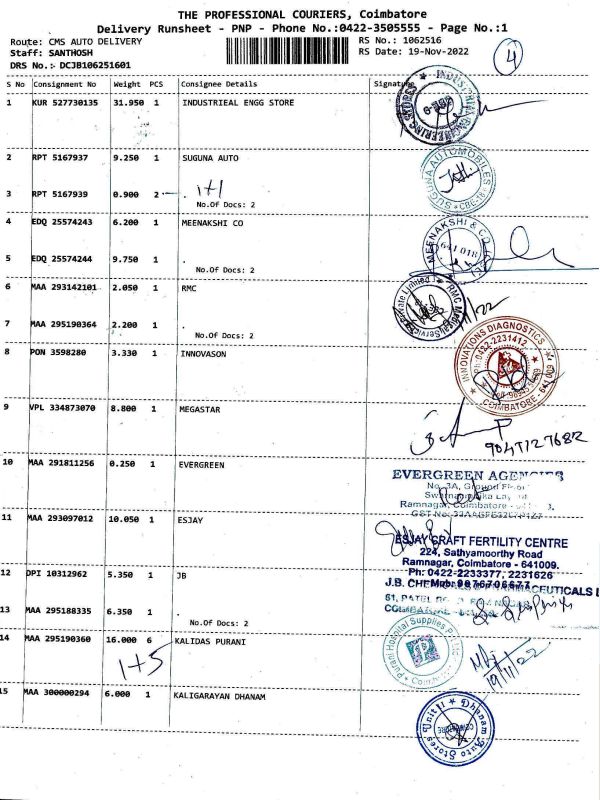 THE PROFESSIONAL COURIERS, Coimbatore
Delivery Runsheet - PNP - Phone No.:0422-3505555 - Page No.:1
Route: CMS AUTO DELIVERY
RS No.: 1062516
Staff: SANTHOSH
RS Date: 19-Nov-2022
4
DRS No.:- DCJB106251601
S No Consignment No Weight PCS Consignee Details Signature
1 KUR 527730135 31.950 1 INDUSTRIEAL ENGG STORE
INDUSTRIAL ENGINEERING STORES
2 RPT 5167937 9.250 1 SUGUNA AUTO
SUGUNA AUTOMOBILES
3 RPT 5167939 0.900 2 .
1+1
No.Of Docs: 2
4 EDQ 25574243 6.200 1 MEENAKSHI CO
MEENAKSHI & CO
641 018
5 EDQ 25574244 9.750 1 .
No.Of Docs: 2
6 MAA 293142101 2.050 1 RMC
RMC Medical Services Private Limited
7 MAA 295190364 2.200 1 .
No.Of Docs: 2
8 PON 3598280 3.330 1 INNOVASON
INNOVATIONS DIAGNOSTICS
Ph:0422-2231412
COIMBATORE - 641 009
9 VPL 334873070 8.800 1 MEGASTAR
9047127682
10 MAA 291811256 0.250 1 EVERGREEN
EVERGREEN AGENCIES
No. 3A, Ground Floor
Ramnagar, Coimbatore
11 MAA 293097012 10.050 1 ESJAY
ESJAY GRAFT FERTILITY CENTRE
224, Sathyamoorthy Road
Ramnagar, Coimbatore - 641009.
Ph: 0422-2233377, 2231626
12 DPI 10312962 5.350 1 JB
J.B. CHEMICALS & PHARMACEUTICALS L
61, PATEL
COIMBATORE
13 MAA 295188335 6.350 1 .
No.Of Docs: 2
14 MAA 295190360 16.000 6 KALIDAS PURANI
1+5
Purani Hospital Supplies P. Ltd
19/11/22
15 MAA 300000294 6.000 1 KALIGARAYAN DHANAM
Dhanam Auto Stores Unit II